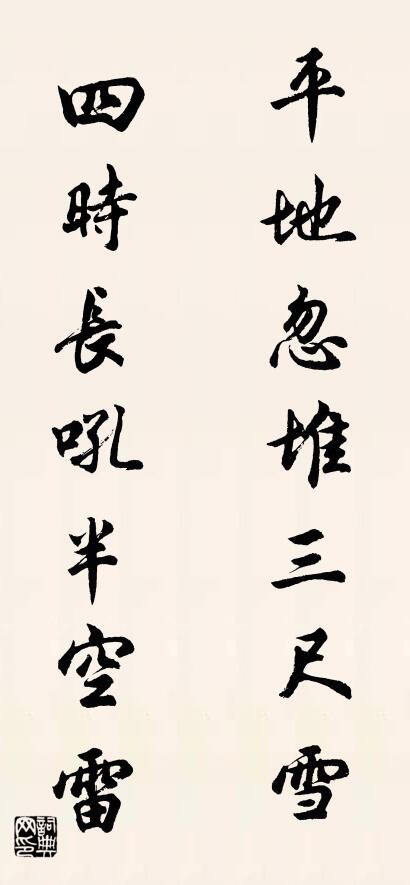 平地忽堆三尺雪
四時長吼半空雷
詞典網印